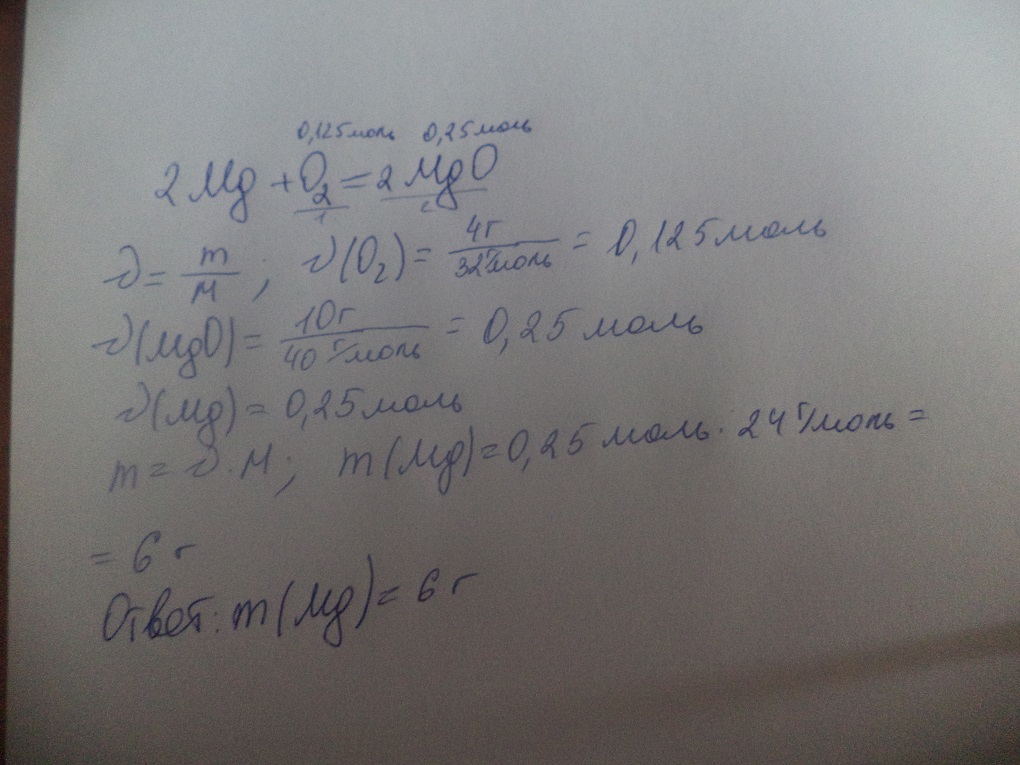 0,125моль 0,25моль
2Mg + O₂ = 2MgO
1 2
ν = m/M ; ν(O₂) = 4г/32г/моль = 0,125моль
ν(MgO) = 10г/40г/моль = 0,25моль
ν(Mg) = 0,25моль
m = ν·M ; m(Mg) = 0,25моль · 24г/моль =
= 6г
Ответ: m(Mg) = 6г